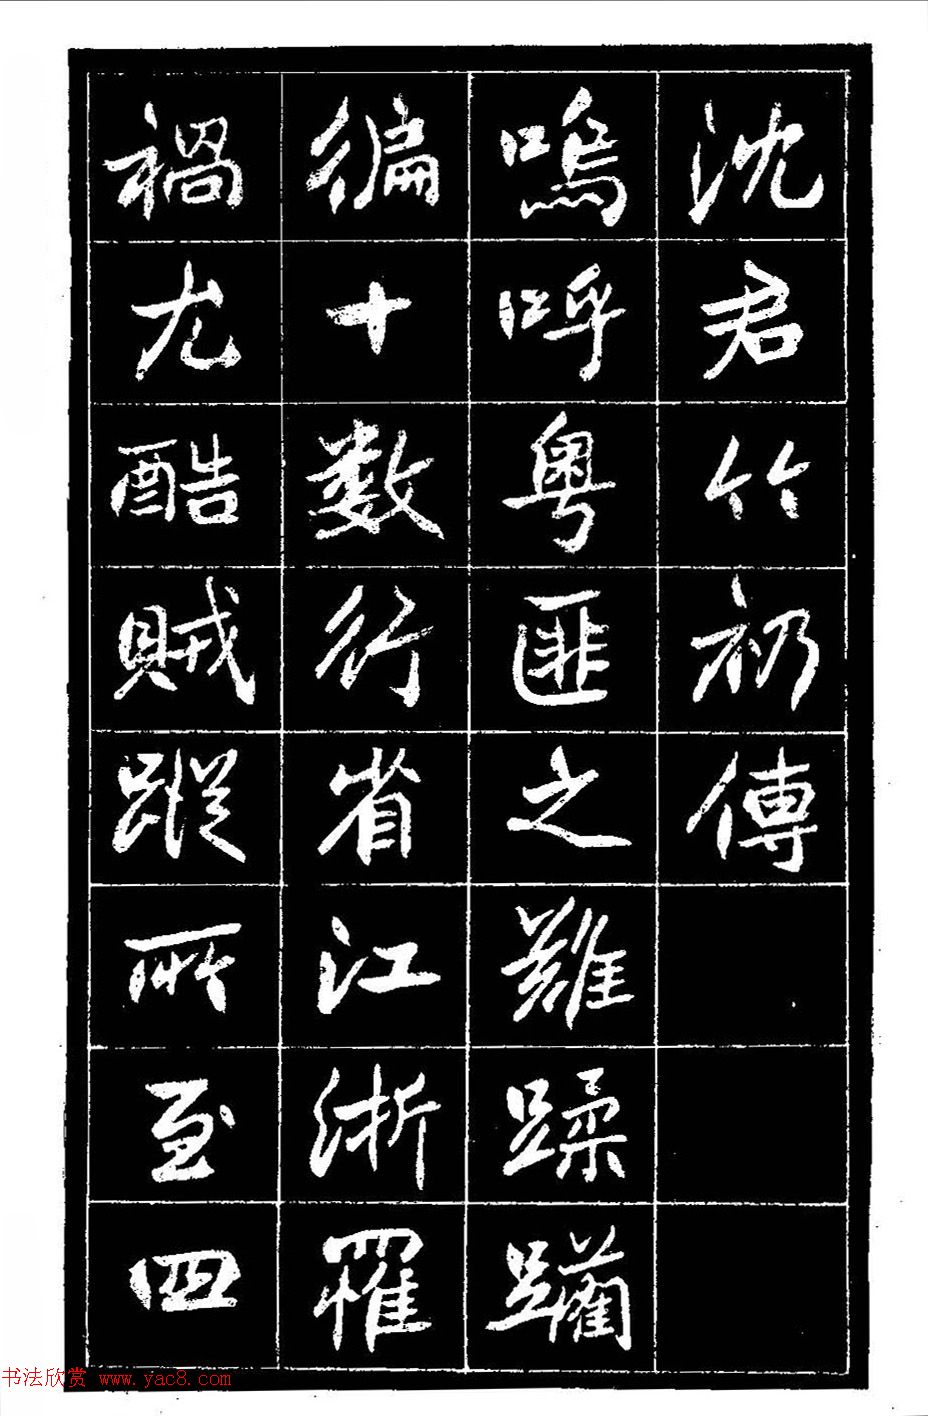 沈君竹礽傳
嗚呼粵匪之難蹂躪
徧十數行省江浙罹
禍尤酷賊蹤所至四
书法欣赏 www.yac8.com